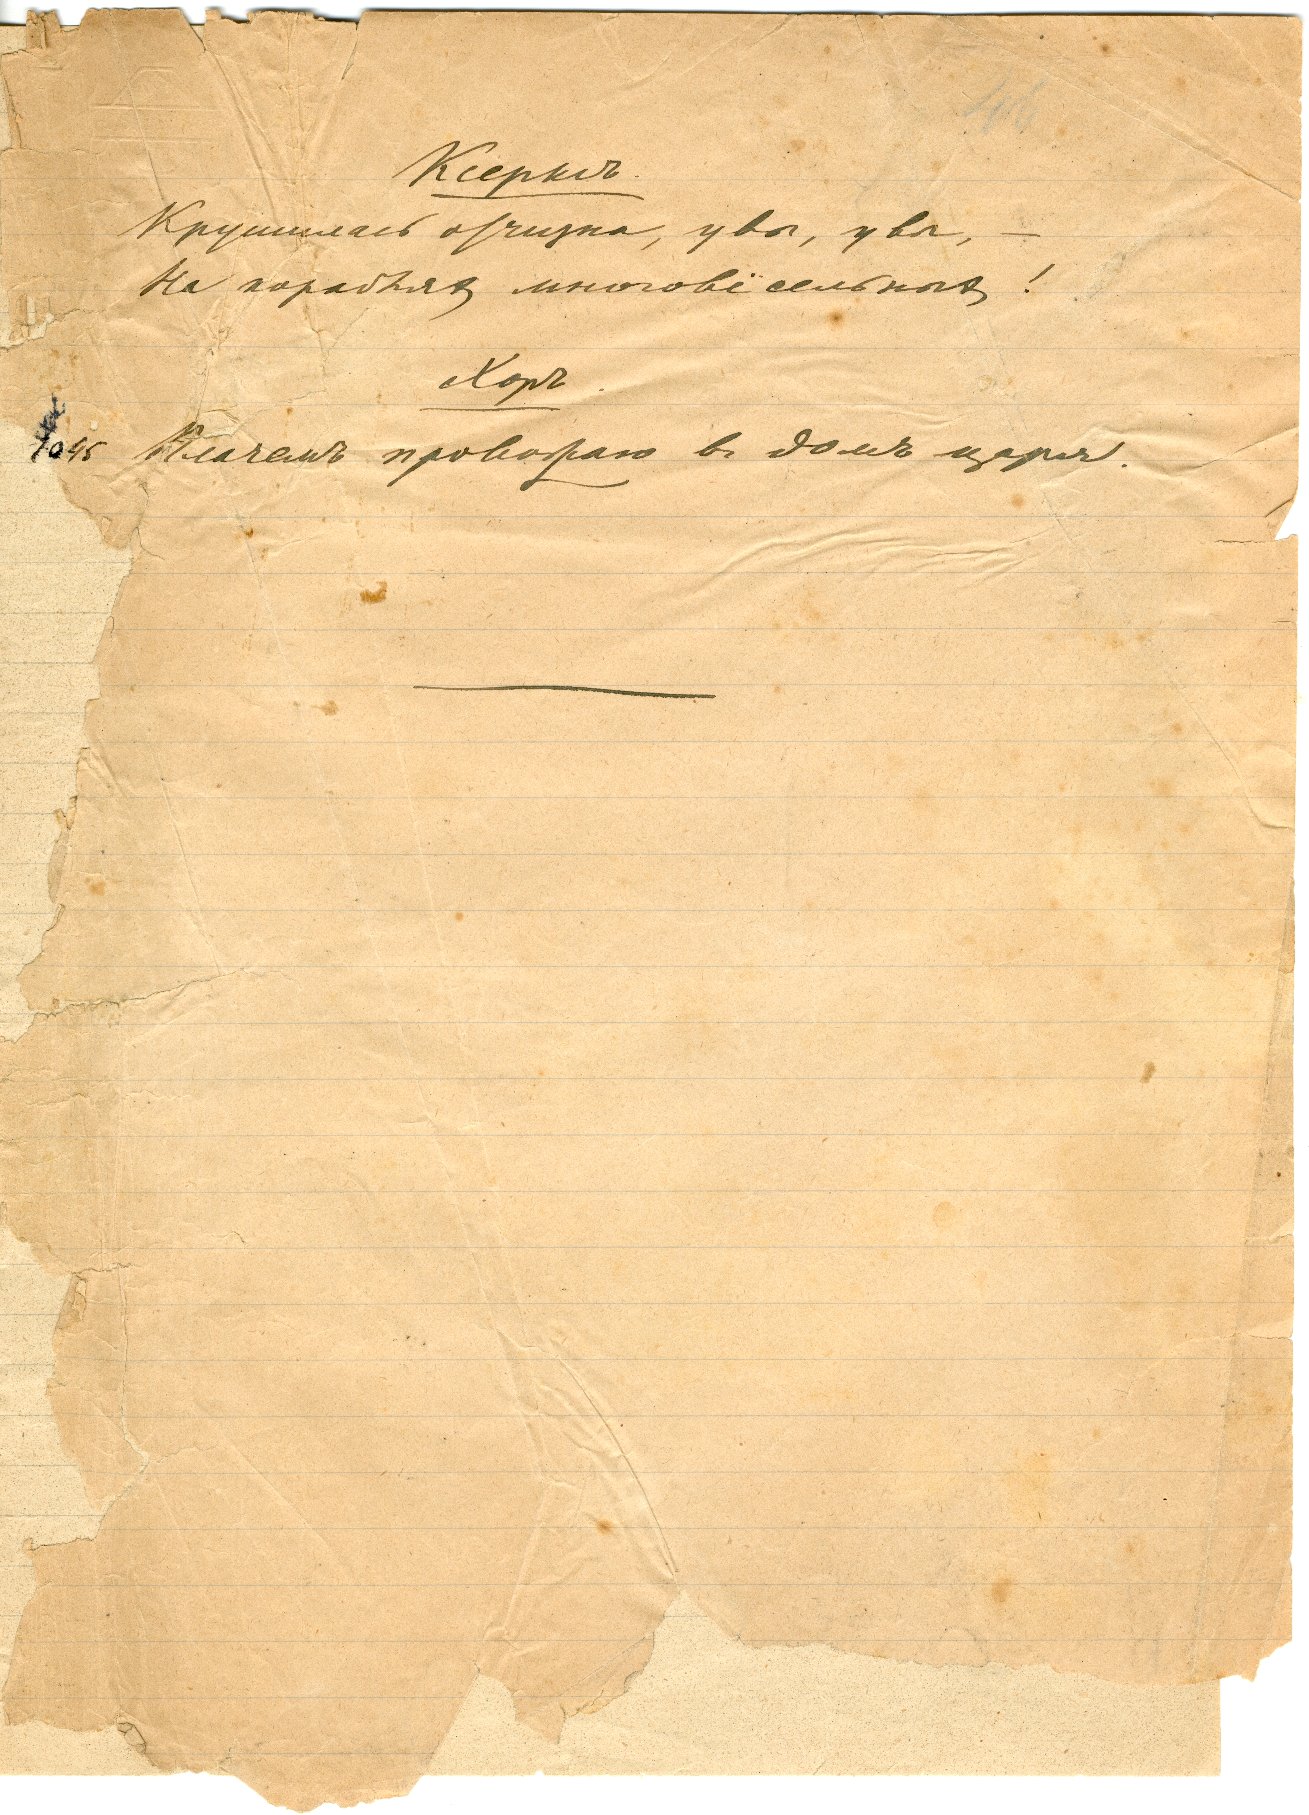 Ксерксъ.
Крушилась отчизна, увы, увы, —
На корабляхъ многовёсельныхъ!
Хоръ.
1045 Плачемъ провожаю въ домъ царя.